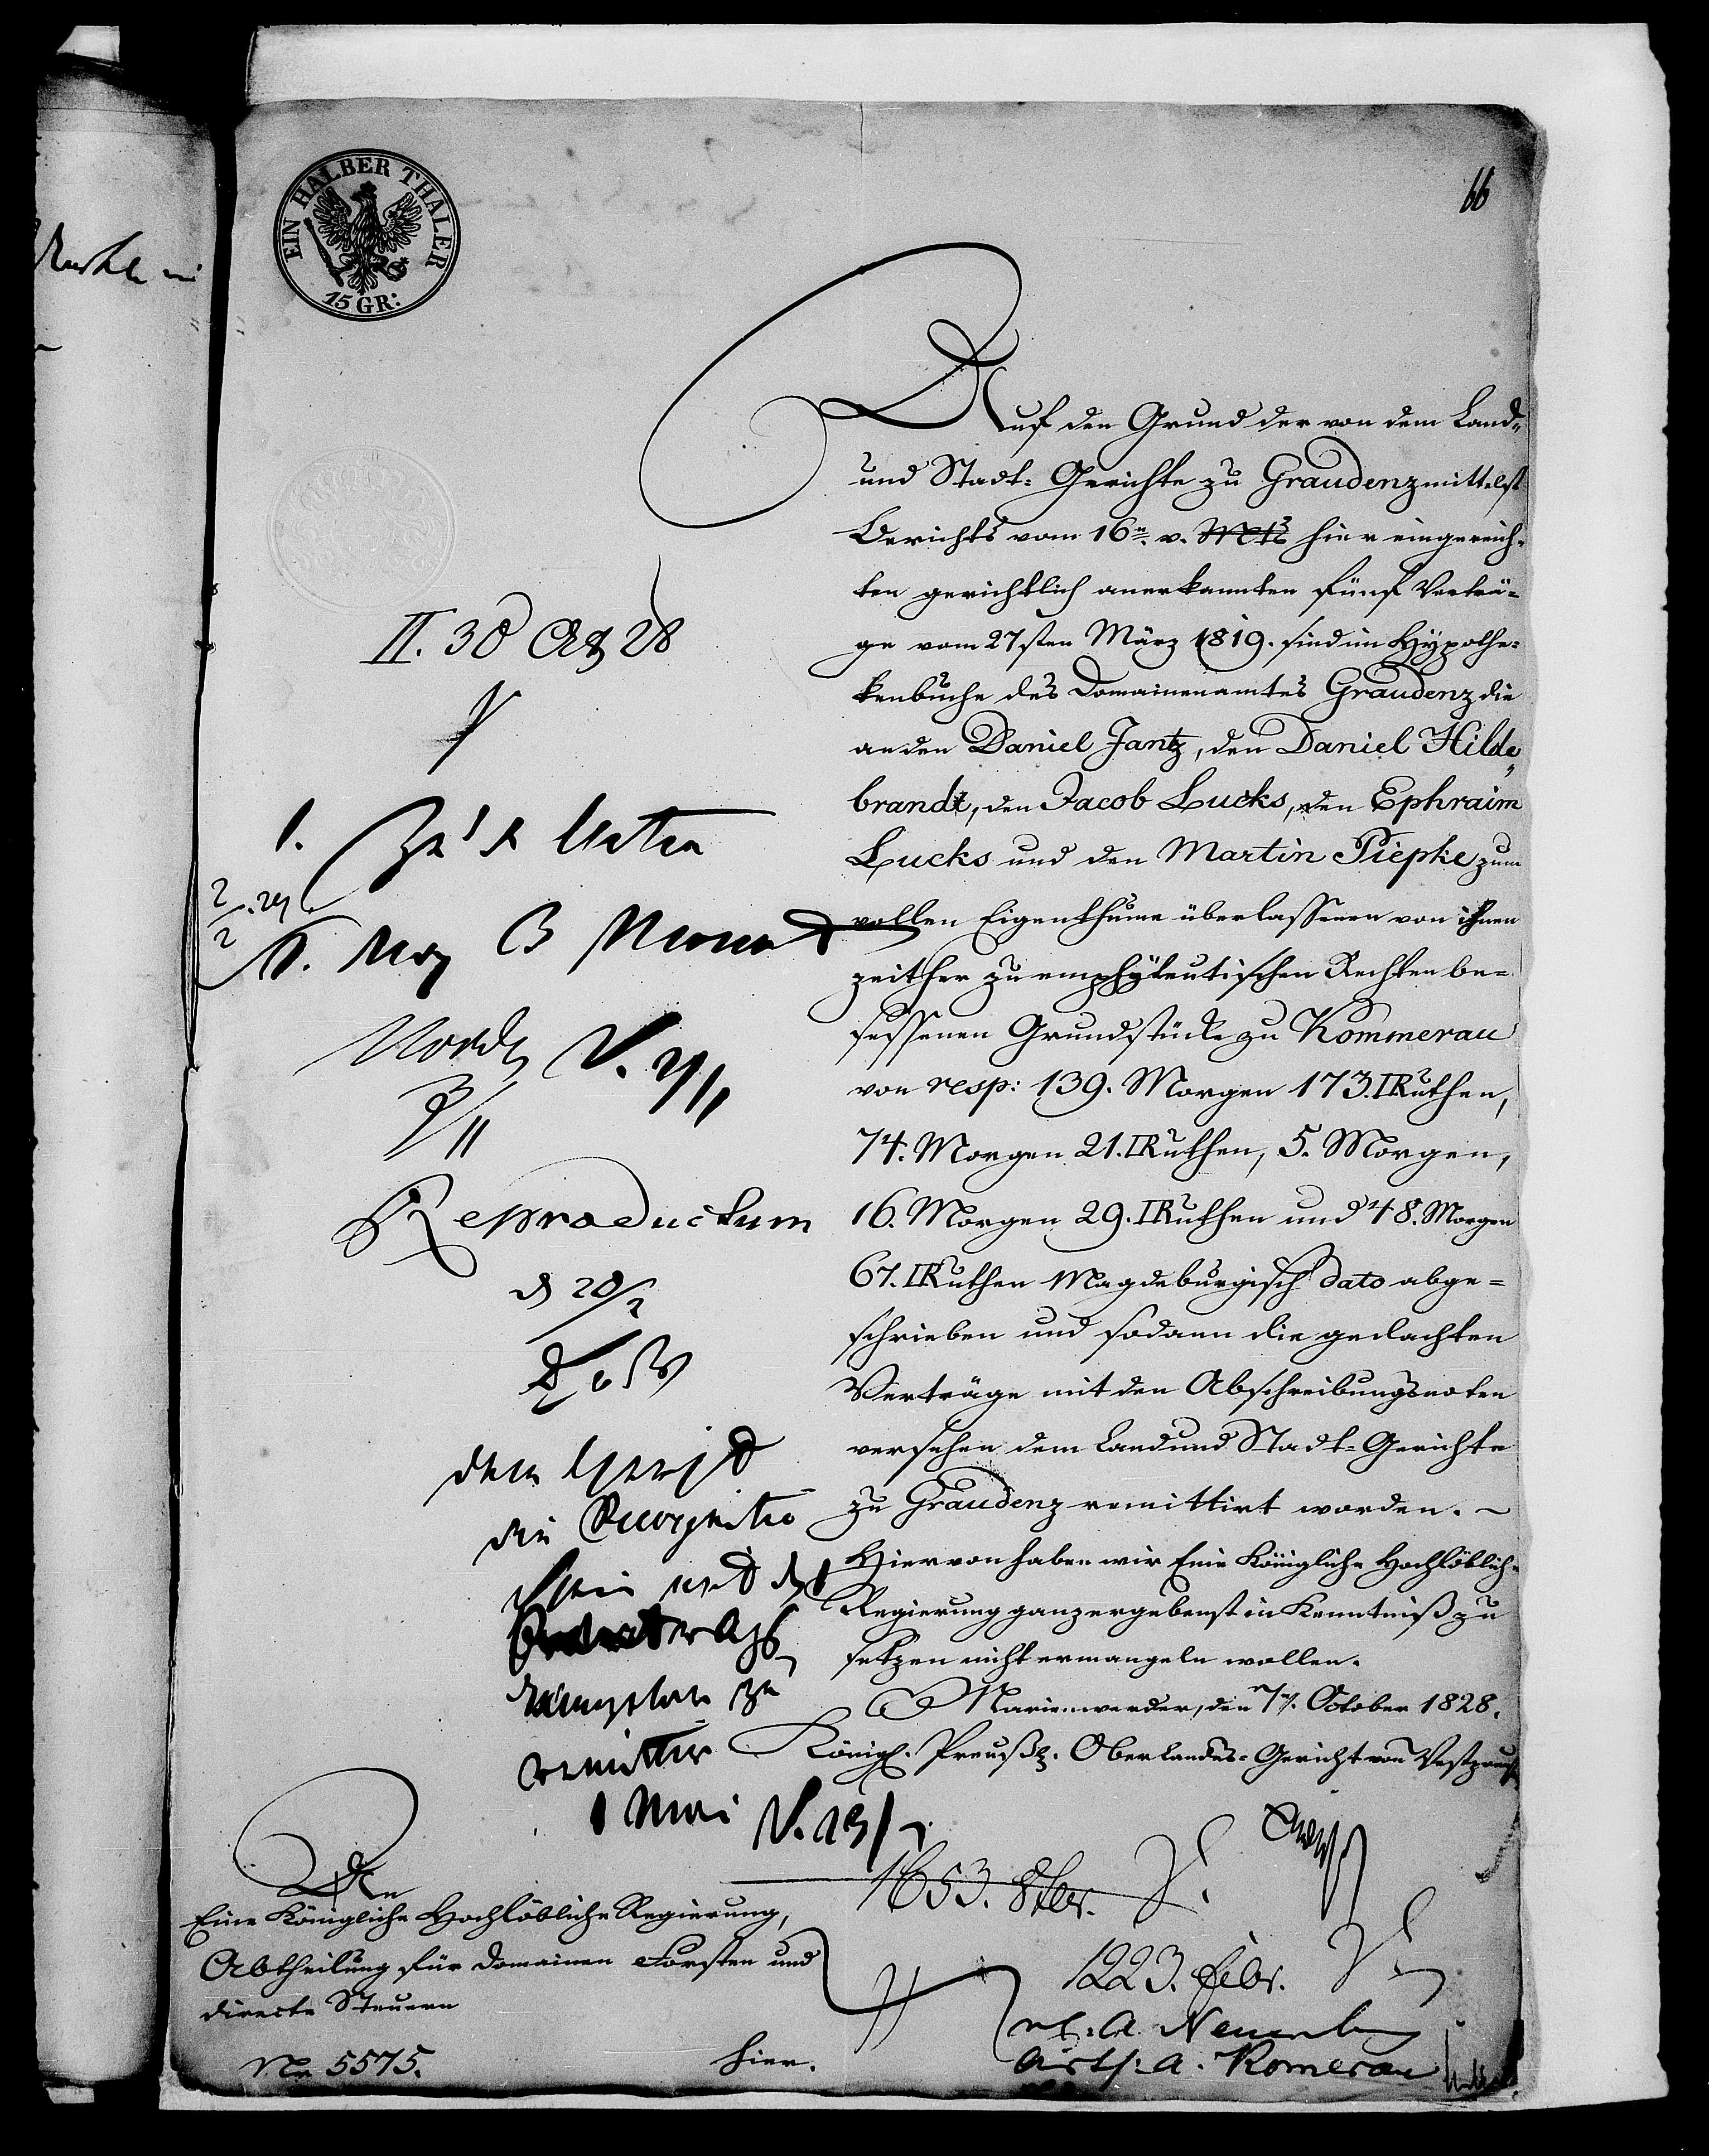 EIN HALBER THALER
15 GR:
66
Auf den Grund der von dem Land-
und Stadt-Gerichte zu Graudenz mittelst
Berichts vom 16n. v. Mts hier eingereich-
ten gerichtlich anerkannten fünf Verträ-
ge vom 27sten März 1819. sind im Hypothe-
kenbuche des Domainenamtes Graudenz die
an den Daniel Jantz, den Daniel Hilde-
brandt, den Jacob Lucks, den Ephraim
Lucks und den Martin Piepke zum
vollen Eigenthume überlassenen von ihnen
zeither zu emphyteutischen Rechten be-
sessenen Grundstücke zu Kommerau
von resp: 139. Morgen 173. □Ruthen,
74. Morgen 21. □Ruthen, 5. Morgen,
16. Morgen 29. □Ruthen und 48. Morgen
67. □Ruthen Magdeburgisch dato abge-
schrieben und sodann die gedachten
Verträge mit den Abschreibungsnoten
versehen dem Land und Stadt-Gerichte
zu Graudenz remittirt worden. ~
Hiervon haben wir Eine Königliche Hochlöbliche
Regierung ganz ergebenst in Kenntniß zu
setzen nicht ermangeln wollen.
Marienwerder, den 7n. October 1828.
Königl. Preuß. Oberlandes-Gericht von Westpreuß
II. 30 28
1. Acten
3 Monat
3/11
Reproductum
d 20/2
dem
die Recognitions
zu
remittir
1 Mai
1653. 8tbr.
1223. febr.
a. Komerau
An
Eine Königliche Hochlöbliche Regierung,
Abtheilung für Domainen Forsten und
directe Steuern
hier.
No 5575.